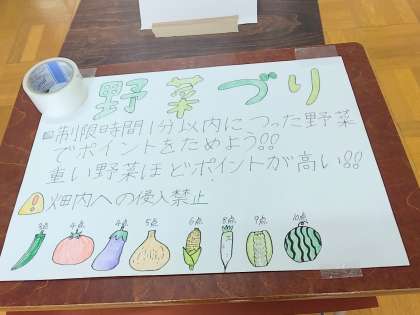 野菜づり
制限時間1分以内につった野菜
でポイントをためよう!!
重い野菜ほどポイントが高い!!
畑内への侵入禁止
4点 4点 5点 6点 8点 9点 10点